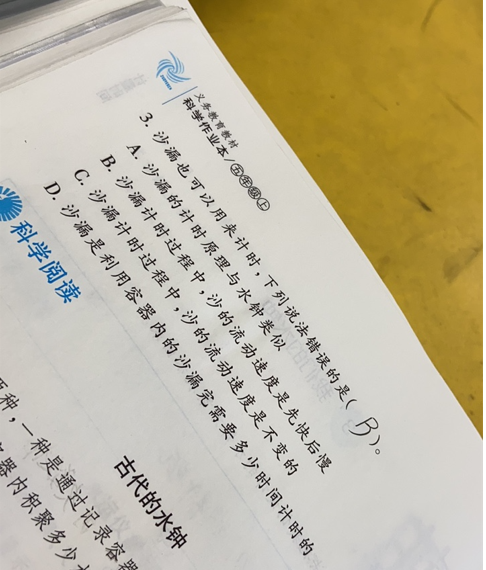 义务教育教材
科学作业本/五年级上
3. 沙漏也可以用来计时，下列说法错误的是( B )。
A. 沙漏的计时原理与水钟类似
B. 沙漏计时过程中，沙的流动速度是先快后慢
C. 沙漏计时过程中，沙的流动速度是不变的
D. 沙漏是利用容器内的沙漏完需要多少时间计时的
科学阅读
古代的水钟
两种，一种是通过记录容器
容器内积聚多少